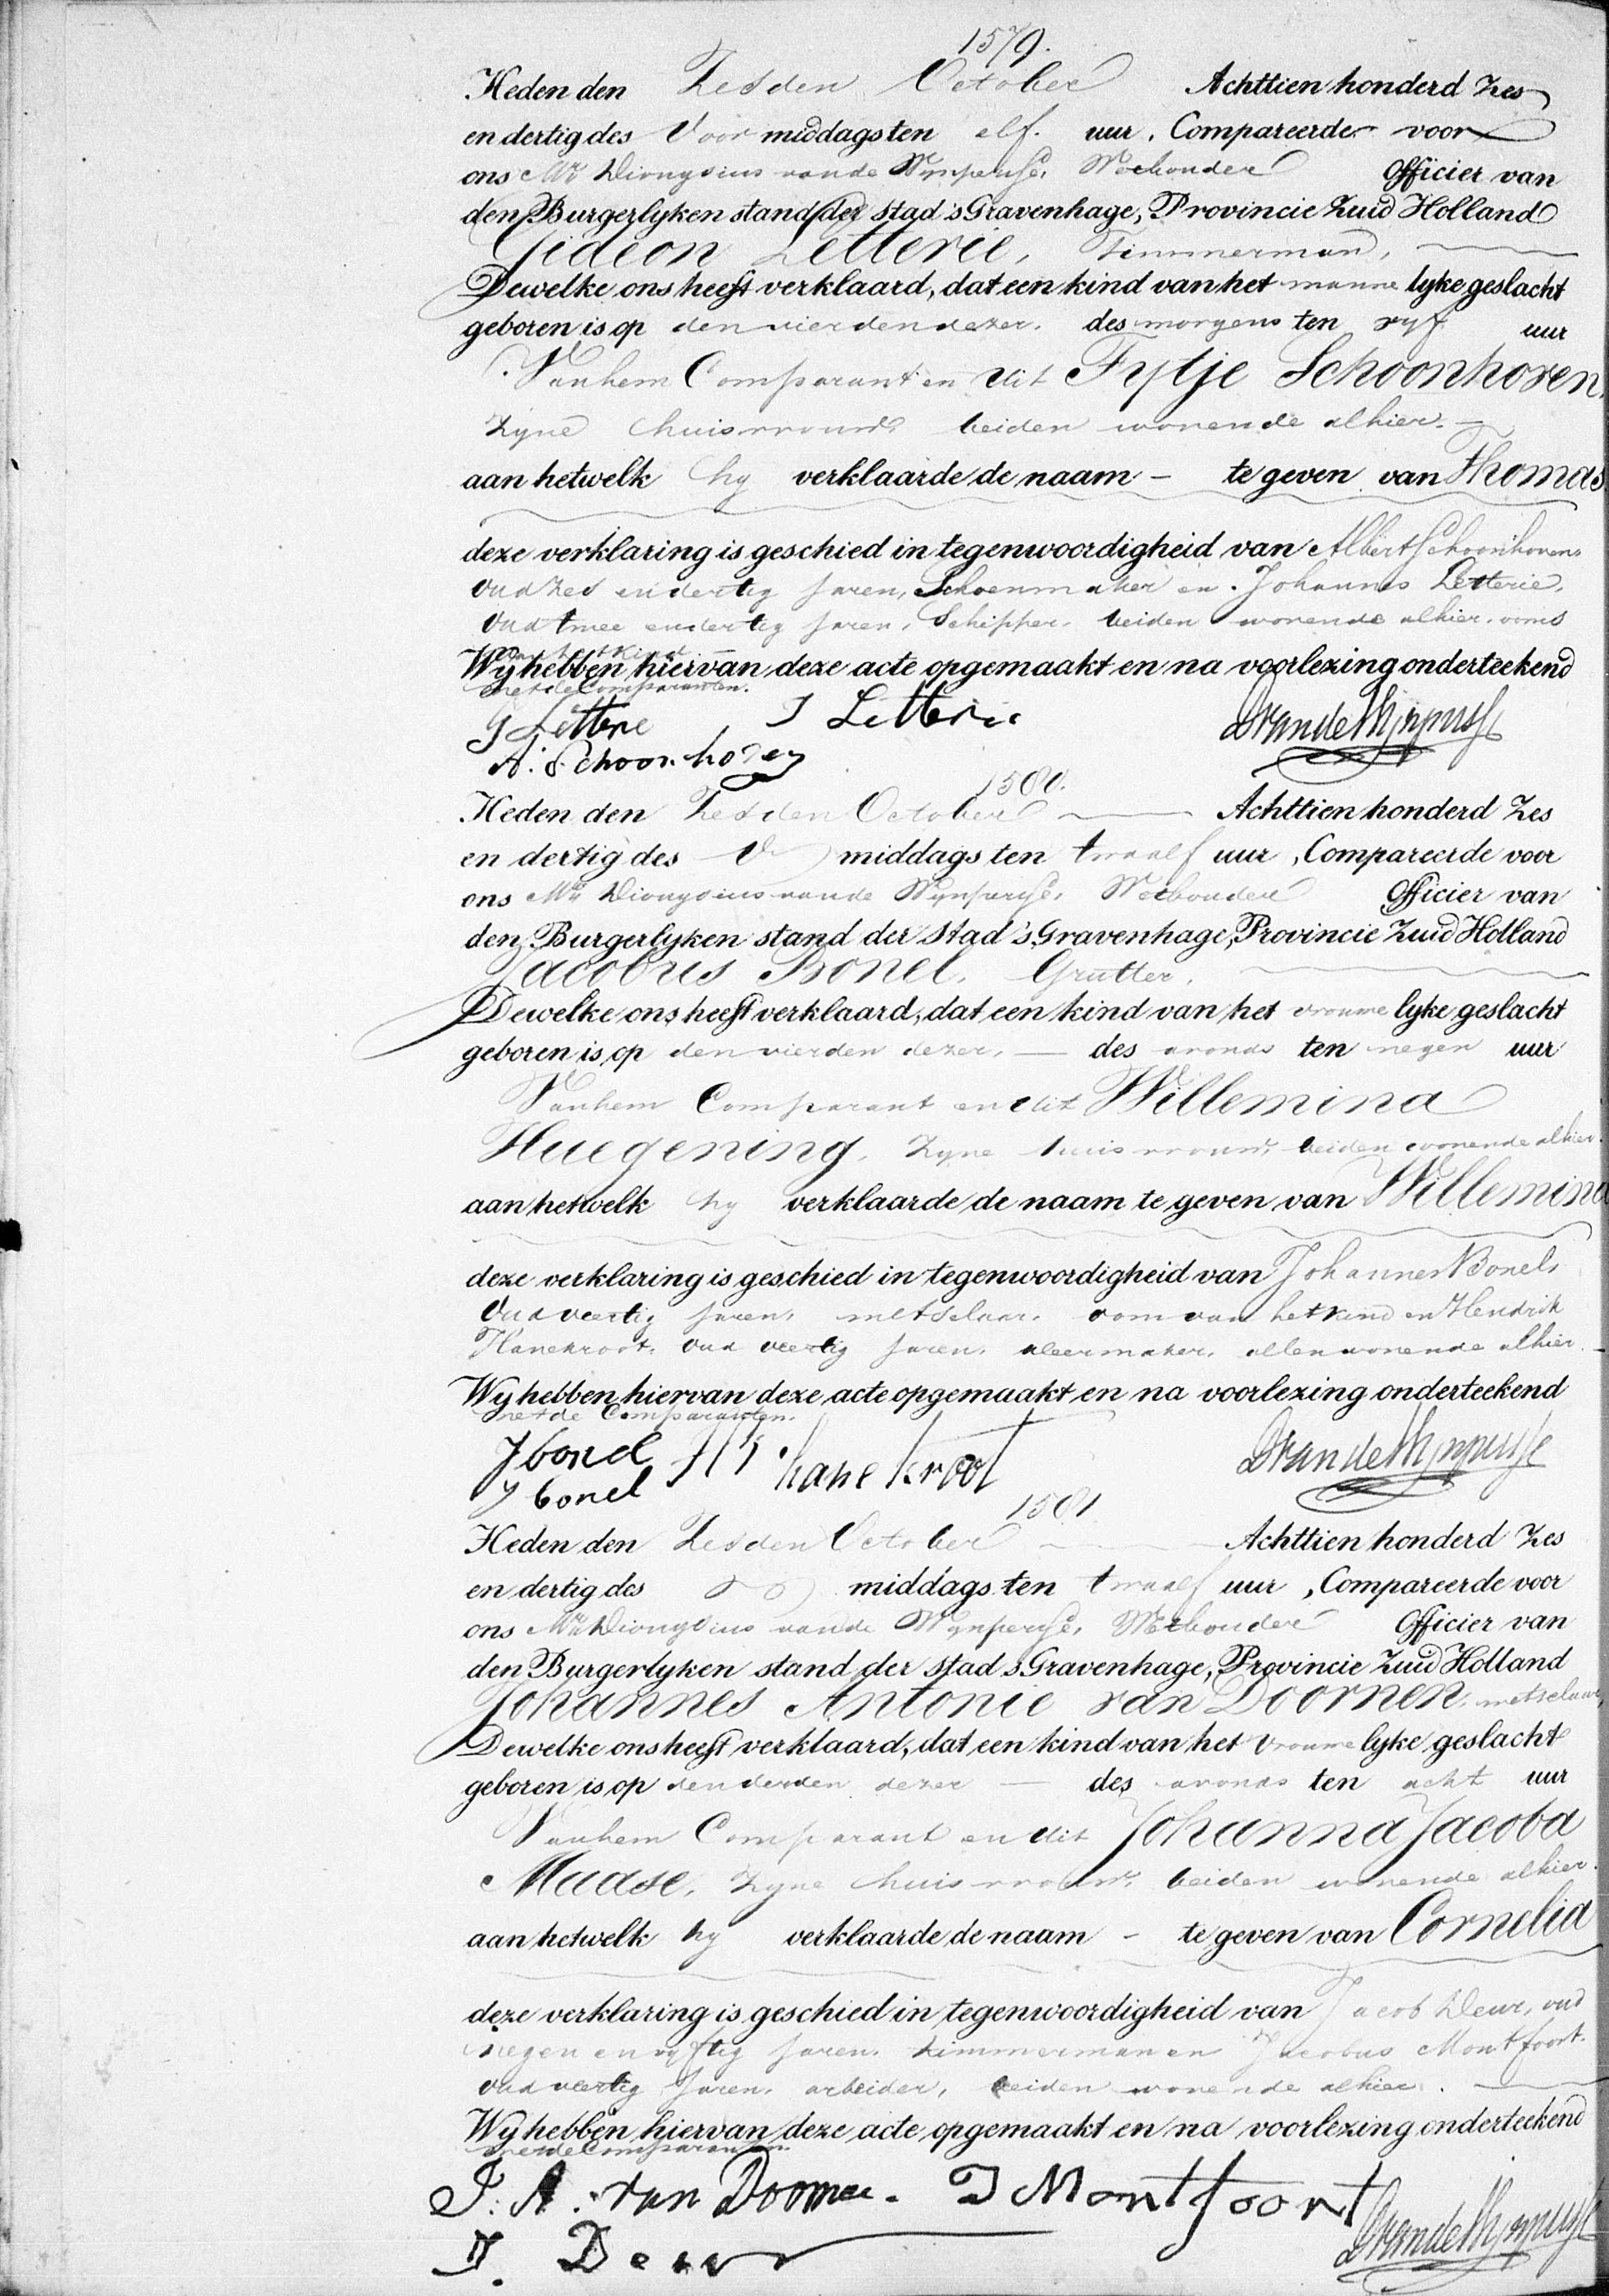 1579.
Heden den Zesden October Achttien honderd Zes
en dertig des Voor middags ten elf. uur, Compareerde voor
ons Mr. Dionysius van de Wijnpersse, Wethouder Officier van
den Burgerlyken stand der stad 's Gravenhage, Provincie Zuid Holland
Gideon Letterie, Timmerman,
Dewelke ons heeft verklaard, dat een kind van het manne lyke geslacht
geboren is op den vierden dezer. des morgens ten vyf uur
Van hem Comparant en uit Fytje Schoonhoven,
Zyne huisvrouw, beiden wonende alhier. –
aan hetwelk hy verklaarde de naam – te geven van Thomas
deze verklaring is geschied in tegenwoordigheid van Albert Schoonhoven,
Oud Zes en dertig Jaren, Schoenmaker en Johannes Letterie,
Oud twee en dertig Jaren, Schipper, beiden wonende alhier, ooms
van het Kind –
Wy hebben hiervan deze acte opgemaakt en na voorlezing onderteekend
met de Comparanten.
G Letterie J Letterie DvandeWijnpersse
A. Schoonhoven
1580.
Heden den Zesden October Achttien honderd Zes
en dertig des middags ten twaalf uur, Compareerde voor
ons Mr. Dionysius van de Wynpersse, Wethouder Officier van
den Burgerlyken stand der stad 's Gravenhage, Provincie Zuid Holland
Jacobus Bonel, Grutter,
Dewelke ons heeft verklaard, dat een kind van het vrouwe lyke geslacht
geboren is op den vierden dezer, – des avonds ten negen uur
Van hem Comparant en uit Willemina
Huegening, Zyne huisvrouw, beiden wonende alhier.
aan hetwelk hy verklaarde de naam te geven van Willemina
deze verklaring is geschied in tegenwoordigheid van Johannes Bonel,
Oud veertig Jaren, metselaar, oom van het kind en Hendrik
Hanekroot, oud veertig Jaren, kleermaker, allen wonende alhier. –
Wy hebben hiervan deze acte opgemaakt en na voorlezing onderteekend
met de Comparanten.
J bonel H hanekroot DvandeWijnpersse
J bonel
1581
Heden den Zesden October Achttien honderd Zes
en dertig des middags ten twaalf uur, Compareerde voor
ons Mr. Dionysius van de Wynpersse, Wethouder Officier van
den Burgerlyken stand der stad 's Gravenhage, Provincie Zuid Holland
Johannes Antonie van Doornen, metselaar,
Dewelke ons heeft verklaard, dat een kind van het vrouwe lyke geslacht
geboren is op den derden dezer – des avonds ten acht uur
Van hem Comparant en uit Johanna Jacoba
Maase, Zyne huisvrouw, beiden wonende alhier.
aan hetwelk hy verklaarde de naam – te geven van Cornelia
deze verklaring is geschied in tegenwoordigheid van Jacob Deur, oud
negen en vyftig Jaren, timmerman en Jacobus Montfoort.
oud veertig Jaren, arbeider, beiden wonende alhier.
Wy hebben hiervan deze acte opgemaakt en na voorlezing onderteekend
met de Comparanten.
J. A. van Doornen. J Montfoort
J. Deur DvandeWijnpersse